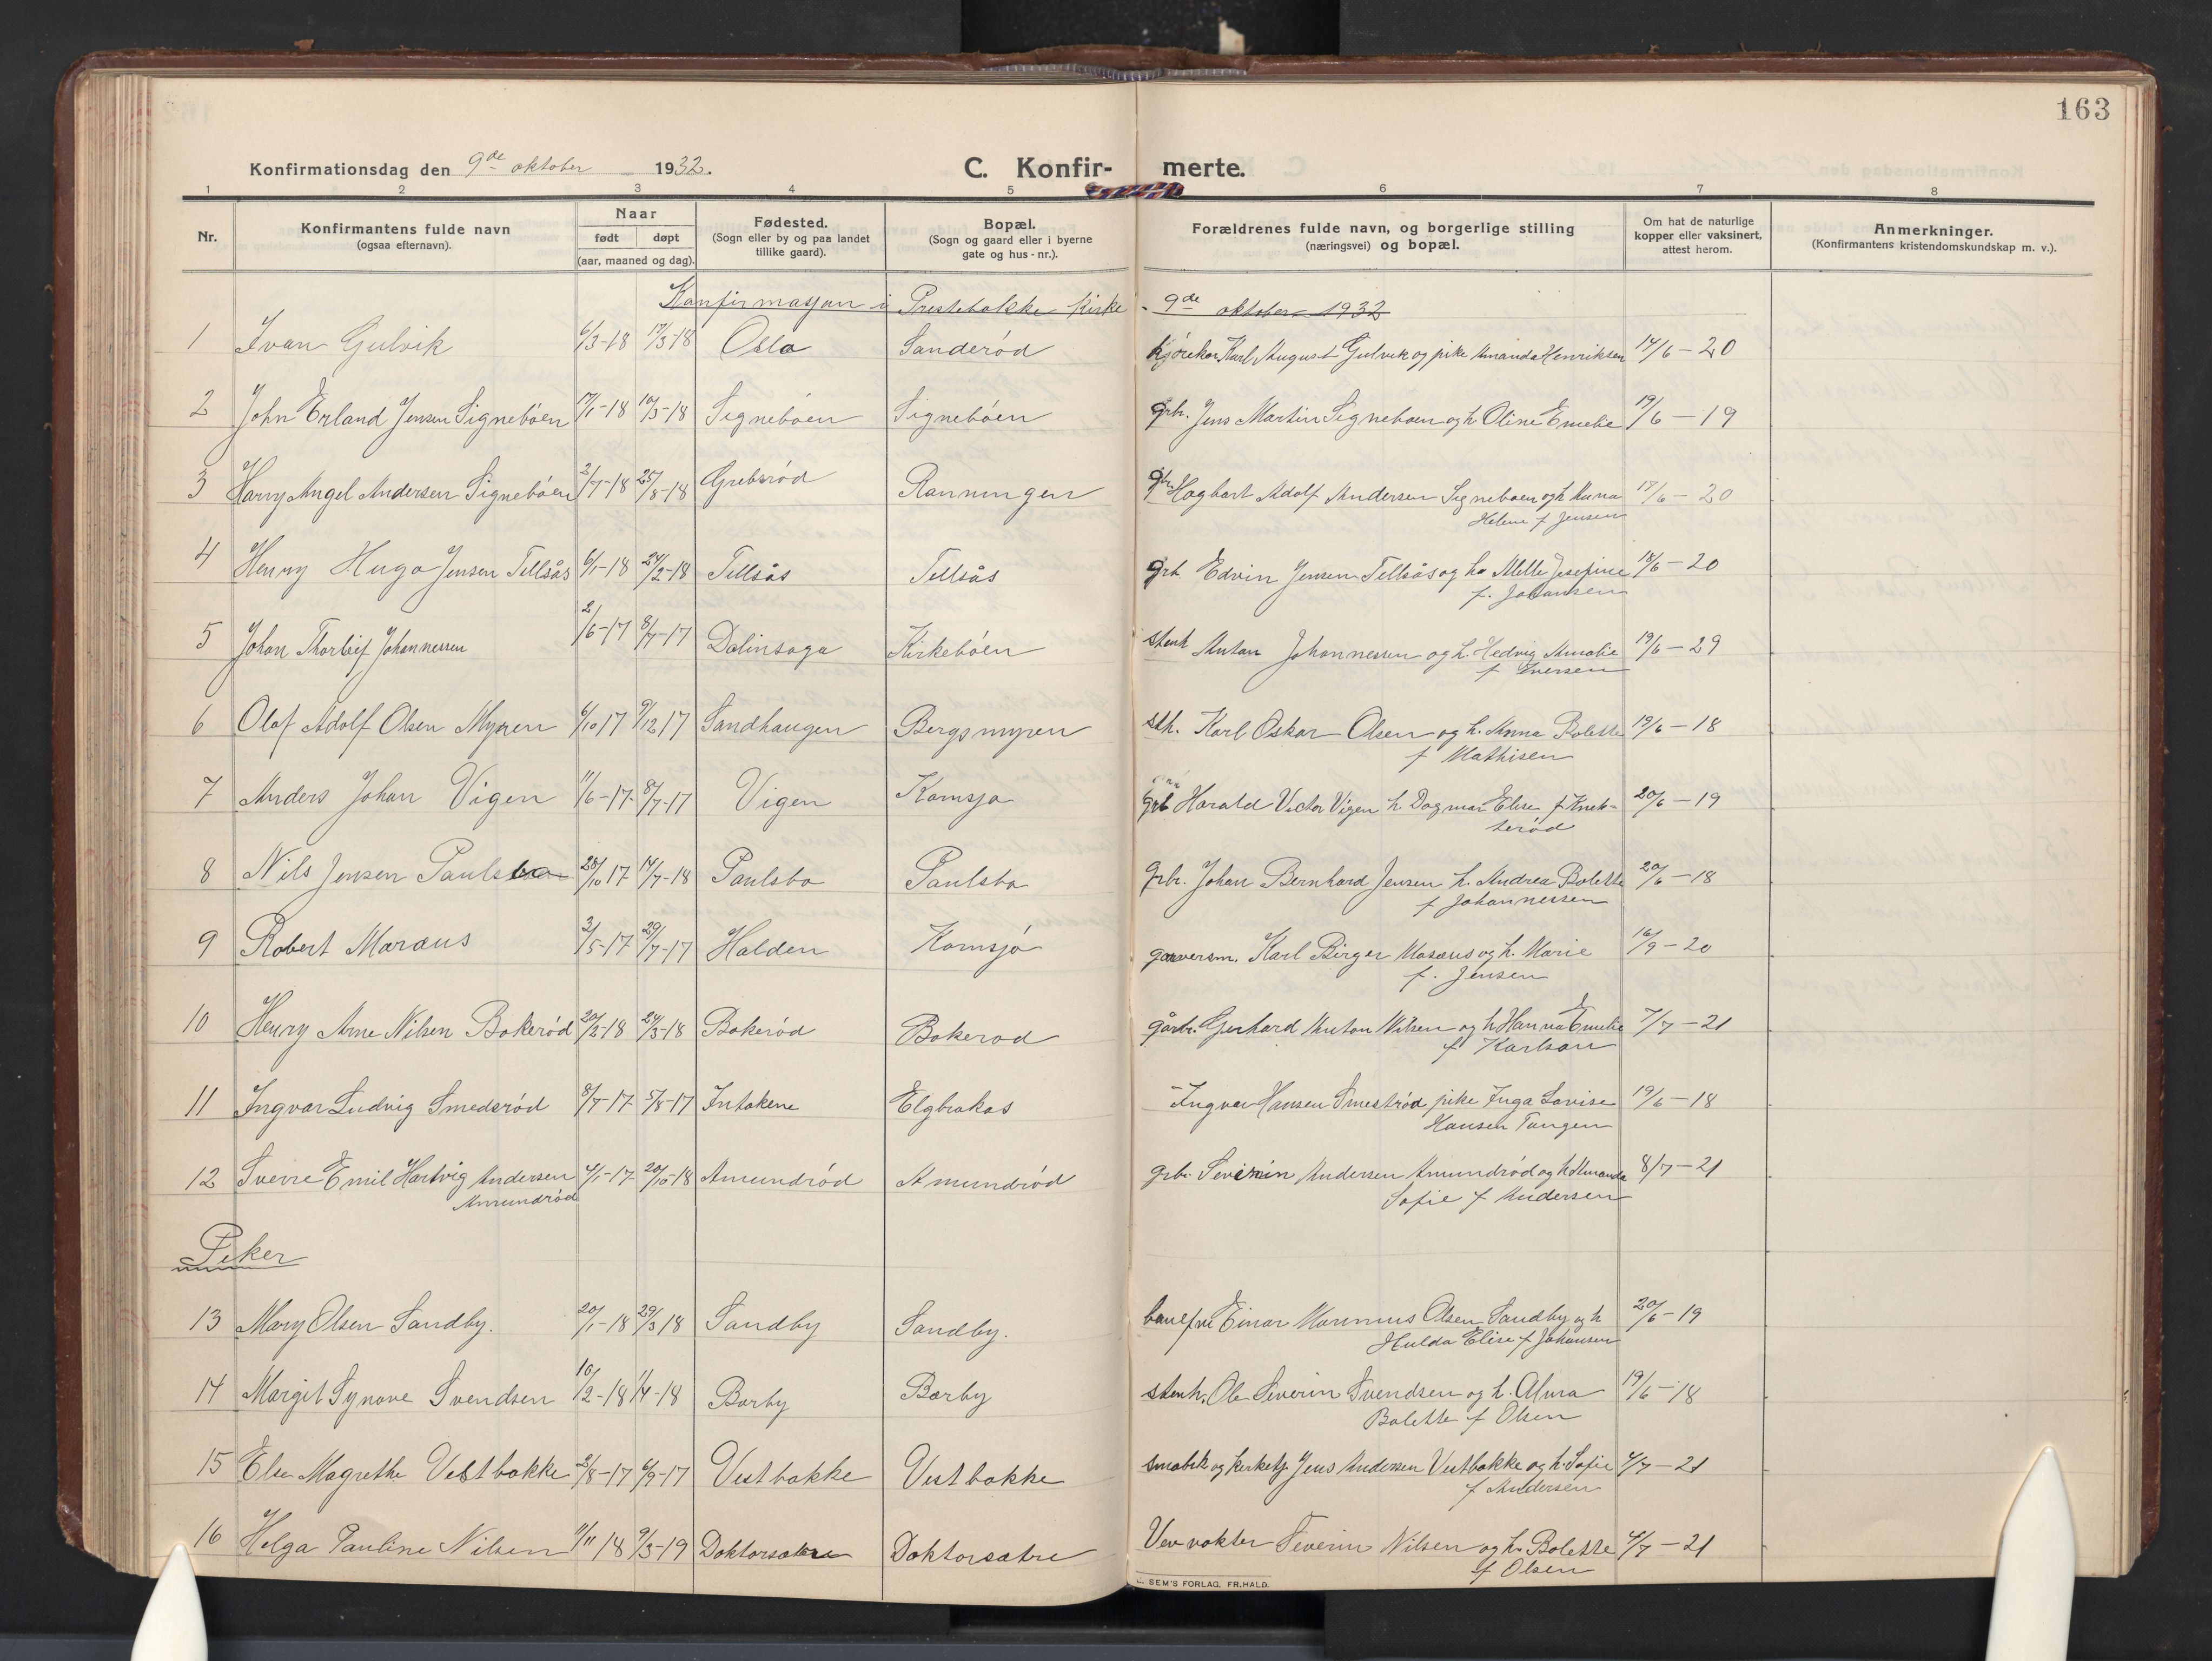 163
Konfirmationsdag den 9de oktober 1932. C. Konfir- merte.
1 2 3 4 5 6 7 8
Nr. Konfirmantens fulde navn (ogsaa efternavn). Naar født døpt (aar, maaned og dag). Fødested. (Sogn eller by og paa landet tillike gaard). Bopæl. (Sogn og gaard eller i byerne gate og hus-nr.). Forældrenes fulde navn, og borgerlige stilling (næringsvei) og bopæl. Om hat de naturlige kopper eller vaksinert, attest herom. Anmerkninger. (Konfirmantens kristendomskundskap m. v.).
Konfirmasjon i Prestebakke kirke 9de oktober 1932
1 Ivan Gulvik 6/3-18 17/3-18 Oslo Sanderød kjørekar Karl August Gulvik og pike Amanda Henriksen 14/6-20
2 John Erland Jensen Signebøen 17/1-18 10/3-18 Signebøen Signebøen grbr. Jens Martin Signebøen og h. Oline Emelie 19/6-19
3 Harry Angel Andersen Signebøen 2/7-18 25/8-18 Grebsrød Ranningen gbr. Hagbart Adolf Andersen Signeboen og h Anna 18/6-20
Helene f Jensen
4 Henry Hugo Jensen Tellsås 6/1-18 24/2-18 Tellsås Tellsås grb Edvin Jensen Tellsås og h Mille Josefine 18/6-20
f. Johansen
5 Johan Thorleif Johannessen 2/6-17 8/7-17 Dalinsaga Kirkebøen stenh Anton Johannessen og h. Hedvig Amalie 19/6-29
f Iversen
6 Olaf Adolf Olsen Myren 6/10 17 9/12 17 Sandhaugen Bergsmyren sth. Karl Oskar Olsen og h. Anna Bolette 19/6-18
f Mathisen
7 Anders Johan Vigen 11/6-17 8/7-17 Vigen Kornsjø grb Harald Victor Vigen h. Dagmar Elise f Knek- 20/6-19
terød
8 Nils Jensen Paulsbo 28/10 17 14/7-18 Paulsbo Paulsbo grbr. Johan Bernhard Jensen h. Andrea Bolette 20/6-18
f Johannessen
9 Robert Maraus 2/5-17 29/7-17 Halden Kornsjø garversm. Karl Birger Masaus og h. Marie 16/9-20
f. Jensen
10 Henry Arne Nilsen Bokerød 20/2-18 24/3-18 Bokerød Bokerød gårbr. Gerhard Anton Nilsen og h Hanna Emelie 7/7-21
f Karlson
11 Ingvar Ludvig Smedsrød 8/7-17 5/8-17 Intakene Elgbrakas Ingvar Hansen Smestrød pike Inga Lovise 19/6-18
Hansen Tangen
12 Sverre Emil Hartvig Andersen 4/1-17 20/10-18 Amundrød Amundrød grbr Severin Andersen Amundrød og h Amanda 8/7-21
Amundrød Sofie f Andersen
Piker
13 Mary Olsen Sandby. 20/1-18 29/3 18 Sandby Sandby. Einar Marinus Olsen Sandby og h 20/6-19
Hulda Elise f Johansen
14 Margit Synøve Svendsen 10/2-18 1/4-18 Børby Børby stenh. Ole Severin Svendsen og h. Alma 19/6-18
Bolette f Olsen
15 Else Magrethe Vestbakke 2/8-17 6/9-17 Vestbakke Vestbakke småbr og kirketj Jens Andersen Vestbakke og h. Sofie 4/7-21
f Andersen
16 Helga Pauline Nilsen 11/11 18 9/3-19 Doktorsætre Doktorsætre Vevvokter Severin Nilsen og h. Bolette 4/7-21
f Olsen
SEM'S FORLAG, FR.HALD.